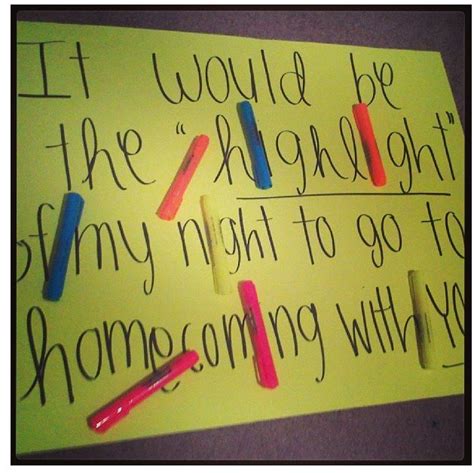 It would be
the "highlight"
of my night to go to
homecoming with Yo